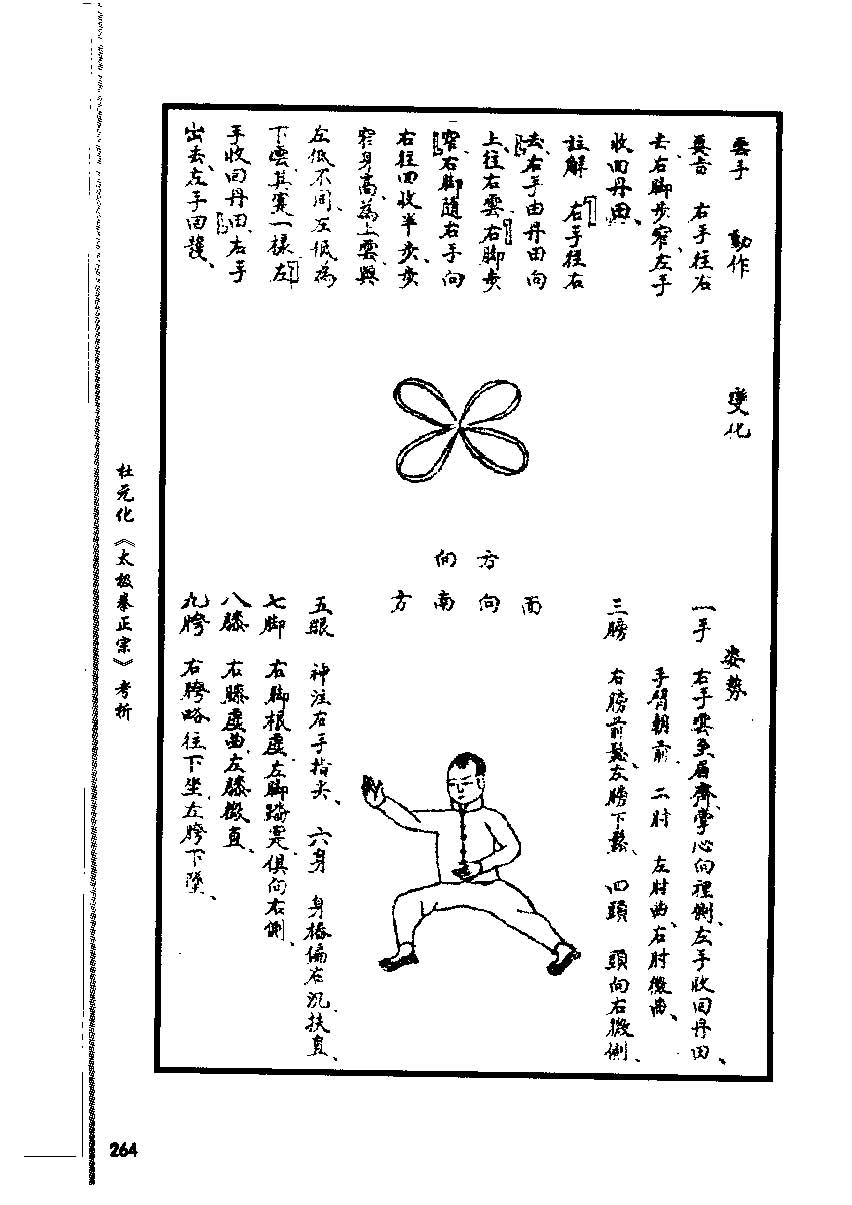 雲手 動作
要言 右手往右
去、右脚步窄、左手
收回丹田、
註解 右手往右
去、右手由丹田向
上往右雲、右脚步
窄、右脚隨右手向
右往回收半步、步
窄身高、為上雲、與
左低不同、左低為
下雲、其寔一樣、左
手收回丹田、右手
出去、左手回護、
變化
方向
面向南方
姿勢
一手 右手雲至眉齊、掌心向裡側、左手收回丹田、
手臂朝前、二肘 左肘曲、右肘微曲、
三膀 右膀前鬆、左膀下鬆、四頭 頭向右微側、
五眼 神注右手指尖、六身 身樁偏右沉、扶直、
七脚 右脚根虛、左脚踏寔、俱向右側、
八膝 右膝虛曲、左膝微直、
九胯 右胯略往下坐、左胯下墜、
杜元化《太极拳正宗》考析
264